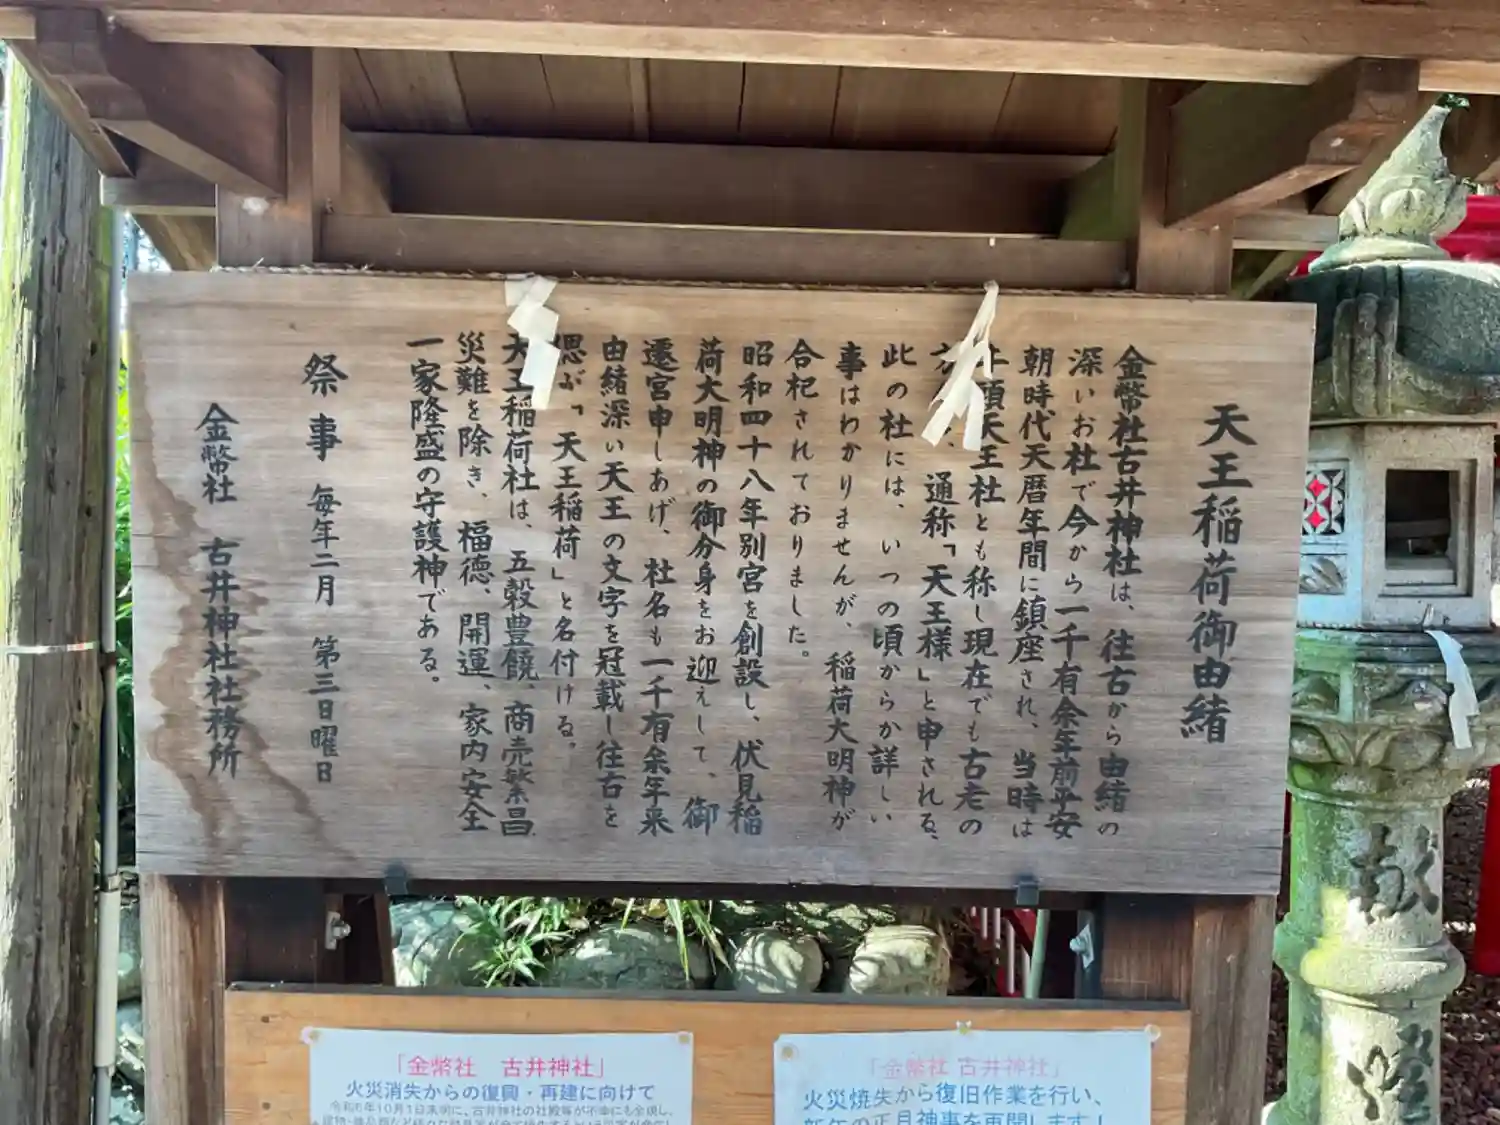 天王稲荷御由緒
金幣社古井神社は、往古から由緒の
深いお社で今から一千有余年前平安
朝時代天暦年間に鎮座され、当時は
牛頭天王社とも称し現在でも古老の
方、通称「天王様」と申される、
此の社には、いつの頃からか詳しい
事はわかりませんが、稲荷大明神が
合祀されておりました。
昭和四十八年別宮を創設し、伏見稲
荷大明神の御分身をお迎えして、御
遷宮申しあげ、社名も一千有余年来
由緒深い天王の文字を冠載し往古を
偲ぶ「天王稲荷」と名付ける。
天王稲荷社は、五穀豊饒、商売繁昌
災難を除き、福徳、開運、家内安全
一家隆盛の守護神である。
祭事 毎年二月 第三日曜日
金幣社 古井神社社務所
献
燈
「金幣社 古井神社」
火災消失からの復興・再建に向けて
令和6年10月1日未明に、古井神社の社殿等が不幸にも全焼し、
「金幣社 古井神社」
火災焼失から復旧作業を行い、
新年の正月神事を再開します！